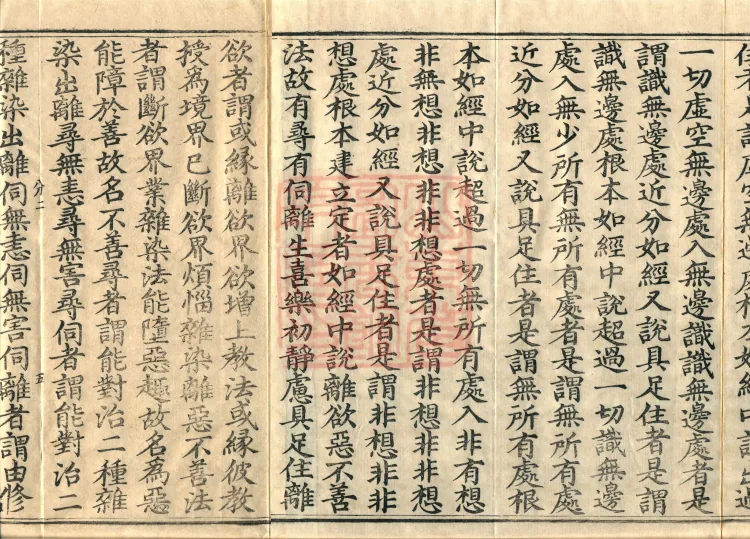 一切虛空無邊處入無邊識識無邊處者是
謂識無邊處近分如經又說具足住者是謂
識無邊處根本如經中說超過一切識無邊
處入無少所有無所有處者是謂無所有處
近分如經又說具足住者是謂無所有處根
本如經中說超過一切無所有處入非有想
非無想非想非非想處者是謂非想非非想
處近分如經又說具足住者是謂非想非非
想處根本建立定者如經中說離欲惡不善
法故有尋有伺離生喜樂初靜慮具足住離
欲者謂或緣離欲界欲增上教法或緣彼教
授爲境界已斷欲界煩惱雜染離惡不善法
者謂斷欲界業雜染法能墮惡趣故名爲惡
能障於善故名不善尋者謂能對治二種雜
染出離尋無恚尋無害尋伺者謂能對治二
分二 五
種雜染出離伺無恚伺無害伺離者謂由修